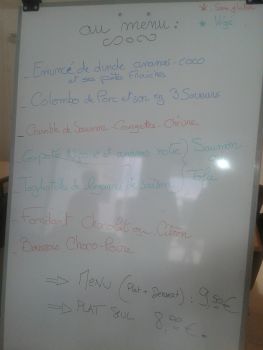 * : Sans gluten
* : Végé
au menu :
_ Emincé de dinde ananas-coco
et ses pâtes fraîches
_ Colombo de Porc et son riz 3 Saveurs
_ Crumble de Saumon-Courgettes-Chèvre
et ananas rôti } Saumon
_ Tagliatelle de légumes de saison
_ Fondant Chocolat ou Citron
_ Choco-Poire
⇒ MENU (Plat + Dessert) : 9,50€
⇒ PLAT SEUL 8,00€